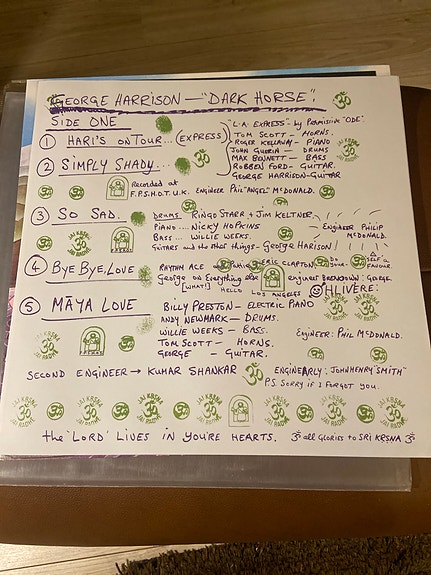 GEORGE HARRISON — "DARK HORSE".
SIDE ONE
① HARI'S ON TOUR... (EXPRESS)
"L.A. EXPRESS" by Permission "ODE".
TOM SCOTT — HORNS.
ROGER KELLAWAY — PIANO
JOHN GUERIN — DRUMS
MAX BENNETT — BASS
ROBBEN FORD — GUITAR.
GEORGE HARRISON - GUITAR
② SIMPLY SHADY...
Recorded at
F.P.S.H.O.T. U.K. ENGINEER Phil "ANGEL" McDONALD.
③ SO SAD.
DRUMS RINGO STARR + JIM KELTNER.
PIANO... NICKY HOPKINS
BASS... WILLIE WEEKS.
GUITARS and the other things - GEORGE HARISON!
ENGINEER PHILIP
McDONALD.
④ BYE BYE, LOVE
RHYTHM ACE and Pattie, ERIC CLAPTON,
George on Everything else
[WHAT!] HELLO LOS ANGELES
DO SELF A
FAVOUR.
⑤ MĀYA LOVE
OHLIVERE:
BILLY PRESTON — ELECTRIC PIANO
ANDY NEWMARK — DRUMS.
WILLIE WEEKS — BASS.
TOM SCOTT — HORNS.
GEORGE — GUITAR.
Engineer: PHIL McDONALD.
SECOND ENGINEER → KUMAR SHANKAR
ENGINEARLY: "JOHNHENRY SMITH"
P.S. SORRY IF I FORGOT YOU.
JAI KRSNA ॐ JAI RADHE
F.P.S.H.O.T.
the 'LORD' LIVES IN YOU'RE HEARTS. ॐ all GLORIES to SRI KRSNA ॐ